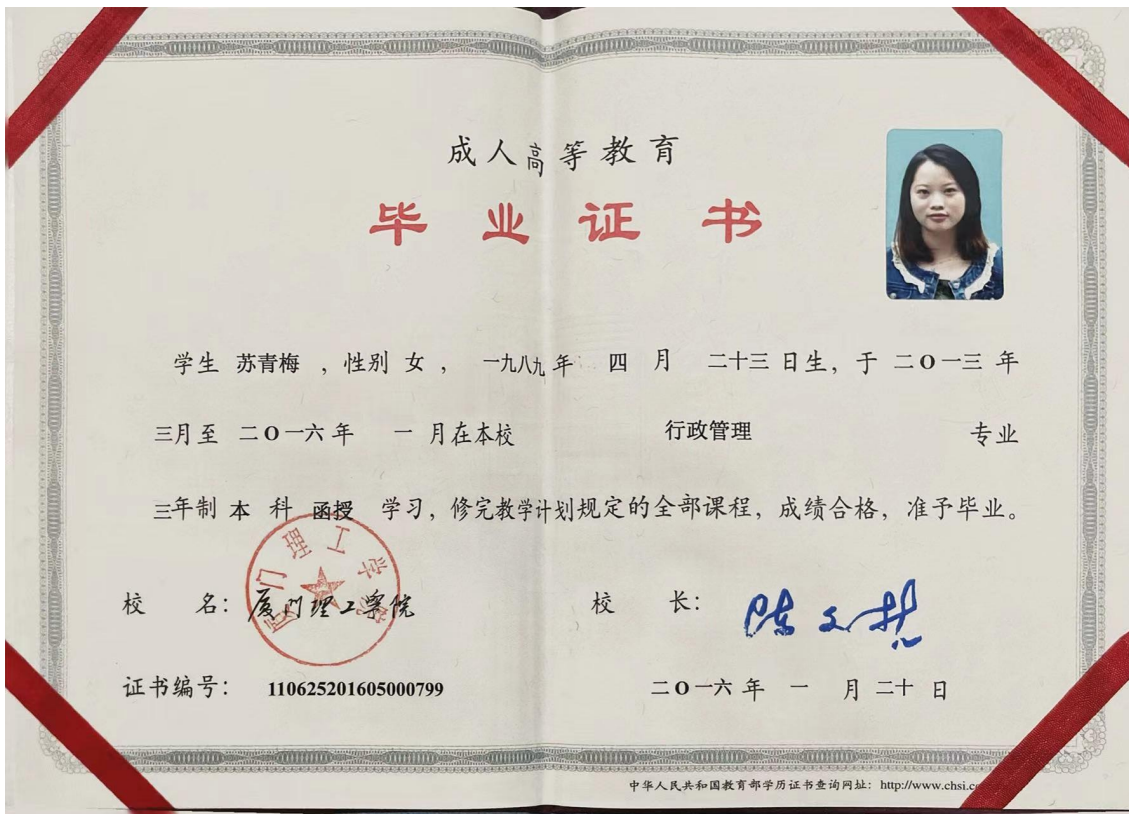 成人高等教育
毕业证书
学生 苏青梅 ，性别 女 ， 一九八九 年 四 月 二十三 日生，于 二O一三 年
三月至 二O一六 年 一 月在本校 行政管理 专业
三年制 本 科 函授 学习，修完教学计划规定的全部课程，成绩合格，准予毕业。
校 名：厦门理工学院
校 长：
厦门理工学院
证书编号： 110625201605000799
二O一六 年 一 月 二十 日
中华人民共和国教育部学历证书查询网址：http://www.chsi.c